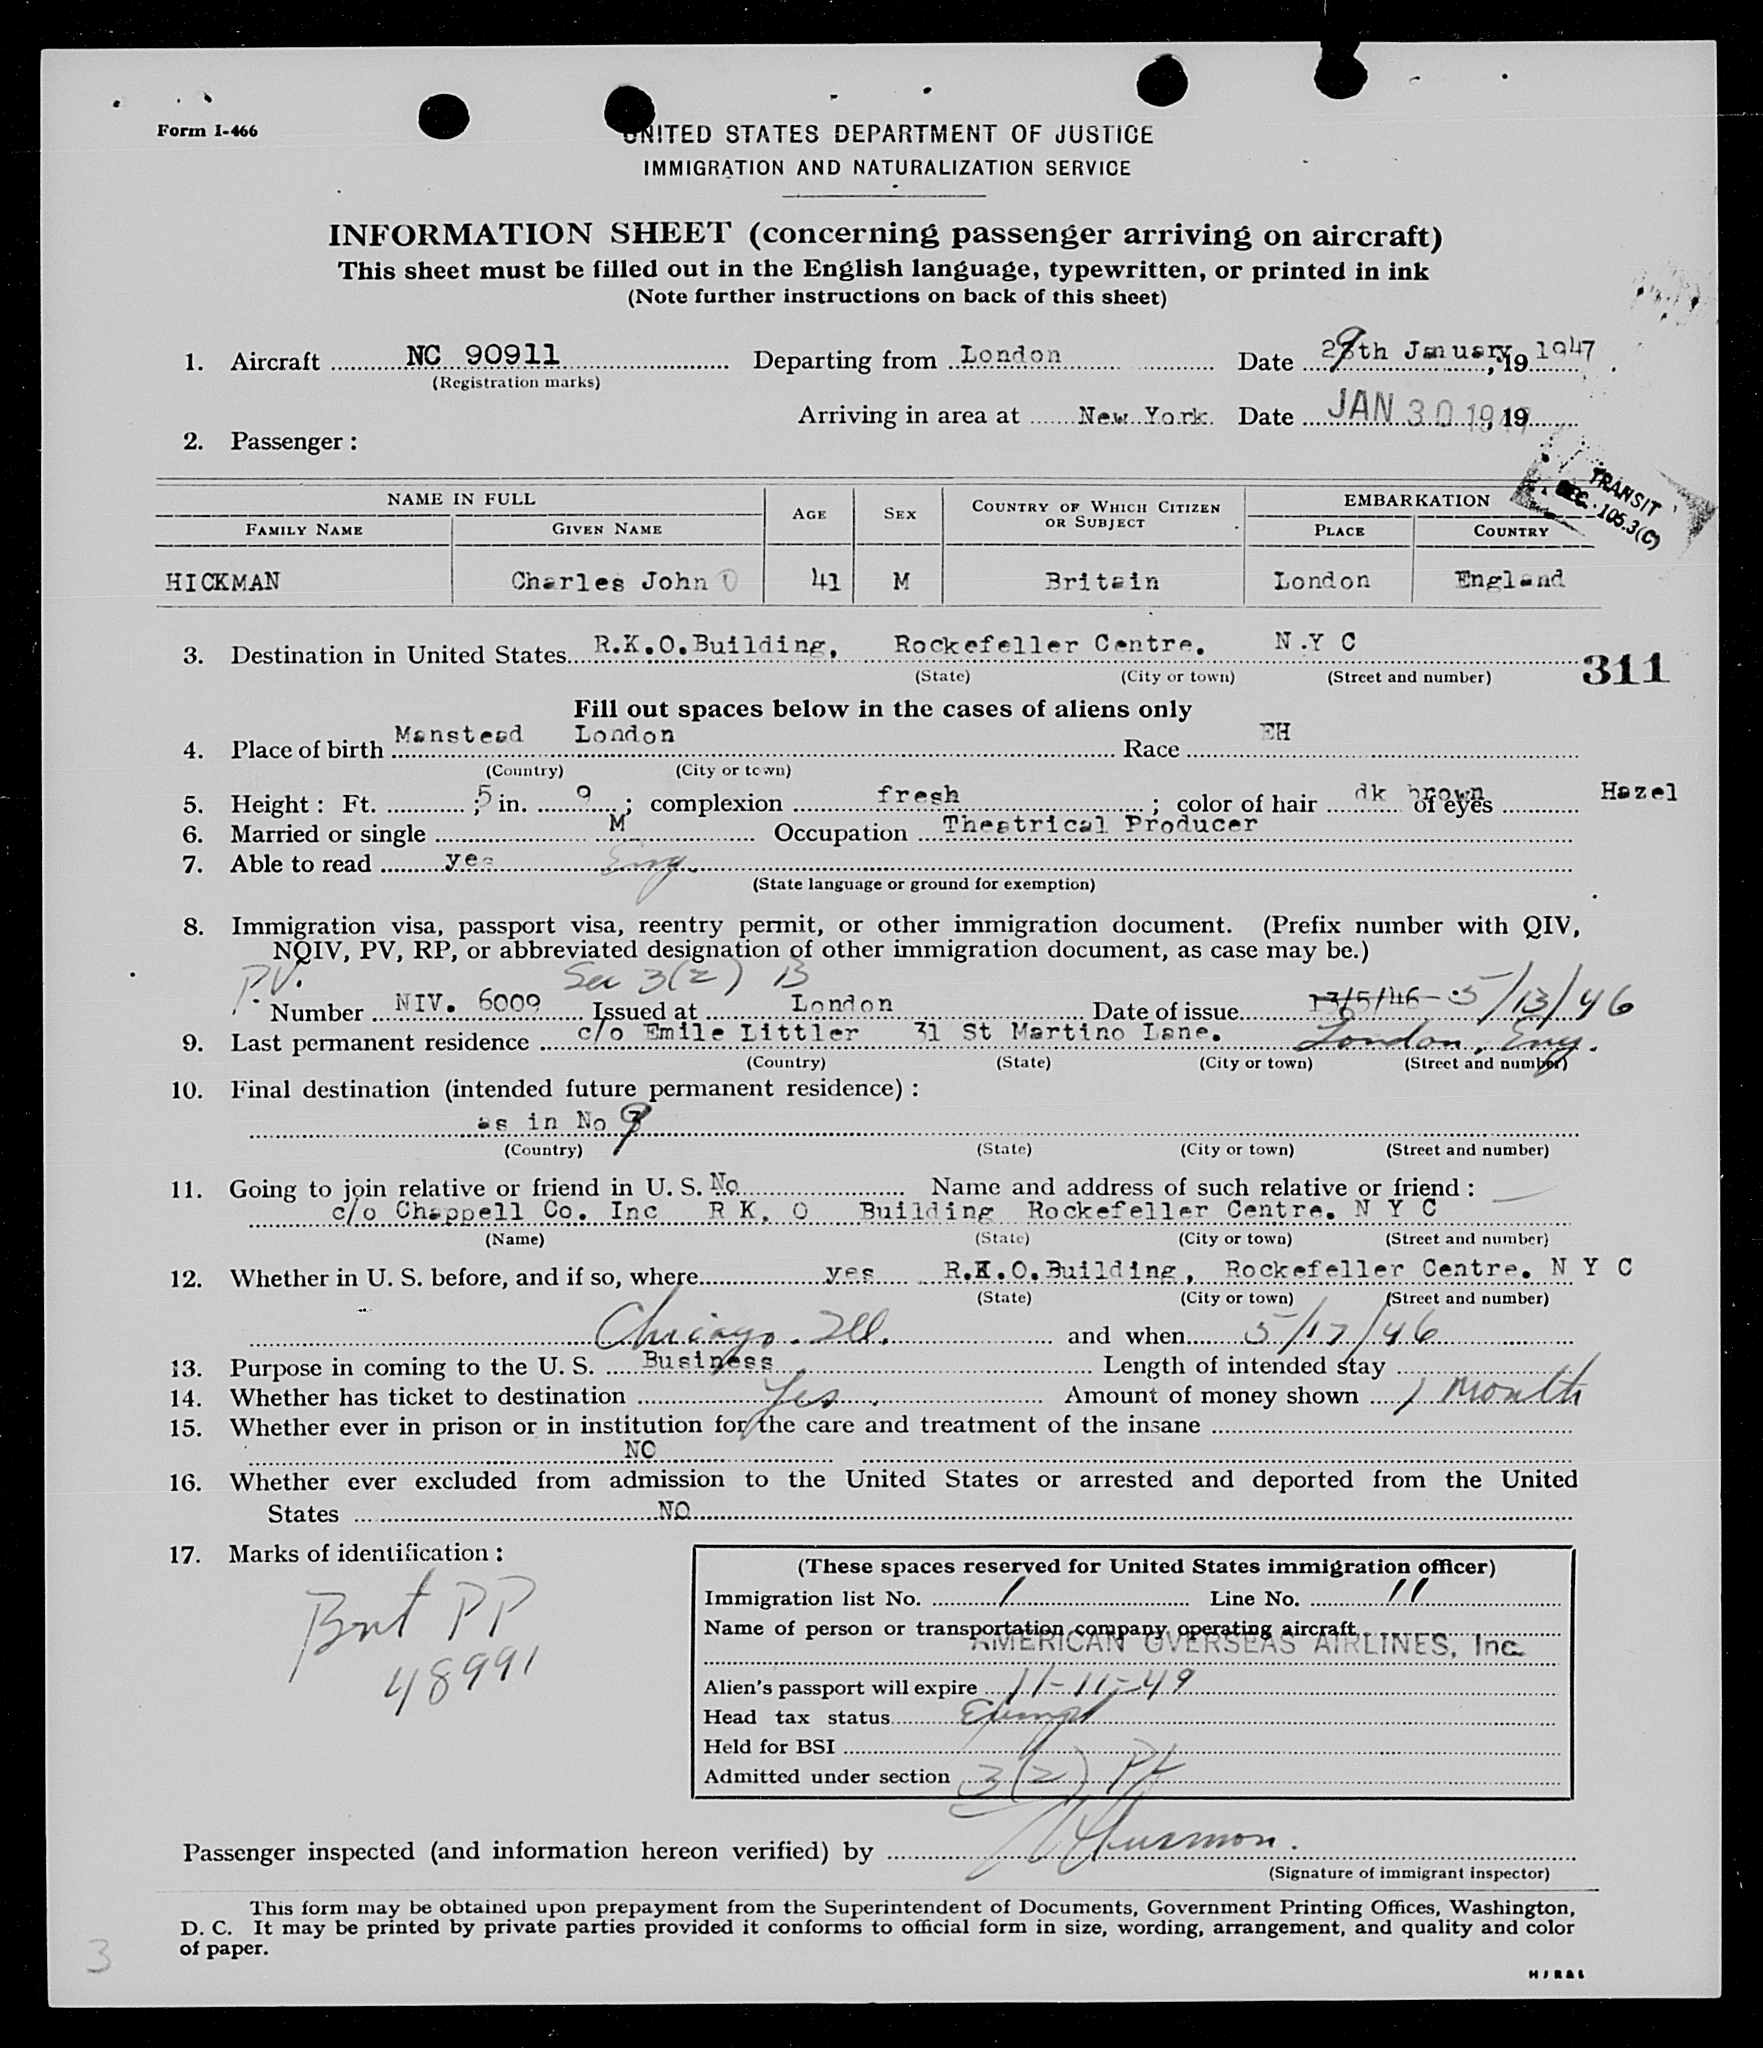 Form I-466
UNITED STATES DEPARTMENT OF JUSTICE
IMMIGRATION AND NATURALIZATION SERVICE
INFORMATION SHEET (concerning passenger arriving on aircraft)
This sheet must be filled out in the English language, typewritten, or printed in ink
(Note further instructions on back of this sheet)
1. Aircraft NC 90911 Departing from London Date 29th January, 19 1947
(Registration marks)
Arriving in area at New York. Date JAN 30 1947, 19
2. Passenger :
TRANSIT
SEC. 105.3(C)
NAME IN FULL AGE SEX COUNTRY OF WHICH CITIZEN OR SUBJECT EMBARKATION
FAMILY NAME GIVEN NAME PLACE COUNTRY
HICKMAN Charles John 41 M Britain London England
3. Destination in United States R.K.O.Building, Rockefeller Centre. N.Y C
(State) (City or town) (Street and number)
311
Fill out spaces below in the cases of aliens only
4. Place of birth Manstead London Race EH
(Country) (City or town)
5. Height : Ft. 5 ; in. 9 ; complexion fresh ; color of hair dk brown of eyes Hazel
6. Married or single M Occupation Theatrical Producer
7. Able to read yes Eng.
(State language or ground for exemption)
8. Immigration visa, passport visa, reentry permit, or other immigration document. (Prefix number with QIV,
NQIV, PV, RP, or abbreviated designation of other immigration document, as case may be.)
P.V. Sec 3(2) B
Number NIV. 6009 Issued at London Date of issue 13/5/46 - 5/13/46
9. Last permanent residence c/o Emile Littler 31 St Martino Lane. London, Eng.
(Country) (State) (City or town) (Street and number)
10. Final destination (intended future permanent residence) :
as in No 9
(Country) (State) (City or town) (Street and number)
11. Going to join relative or friend in U. S. No Name and address of such relative or friend :
c/o Chappell Co. Inc R K. O Building Rockefeller Centre. N Y C
(Name) (State) (City or town) (Street and number)
12. Whether in U. S. before, and if so, where yes R.K.O.Building, Rockefeller Centre. N Y C
(State) (City or town) (Street and number)
Chicago. Ill. and when 5/17/46
13. Purpose in coming to the U. S. Business Length of intended stay
14. Whether has ticket to destination Yes. Amount of money shown 1 month
15. Whether ever in prison or in institution for the care and treatment of the insane
NO
16. Whether ever excluded from admission to the United States or arrested and deported from the United
States NO
17. Marks of identification :
Brit PP
48991
(These spaces reserved for United States immigration officer)
Immigration list No. 1 Line No. 11
Name of person or transportation company operating aircraft
AMERICAN OVERSEAS AIRLINES, Inc.
Alien's passport will expire 11-11-49
Head tax status Exempt
Held for BSI
Admitted under section 3(2)
Passenger inspected (and information hereon verified) by
(Signature of immigrant inspector)
This form may be obtained upon prepayment from the Superintendent of Documents, Government Printing Offices, Washington,
D. C. It may be printed by private parties provided it conforms to official form in size, wording, arrangement, and quality and color
of paper.
3